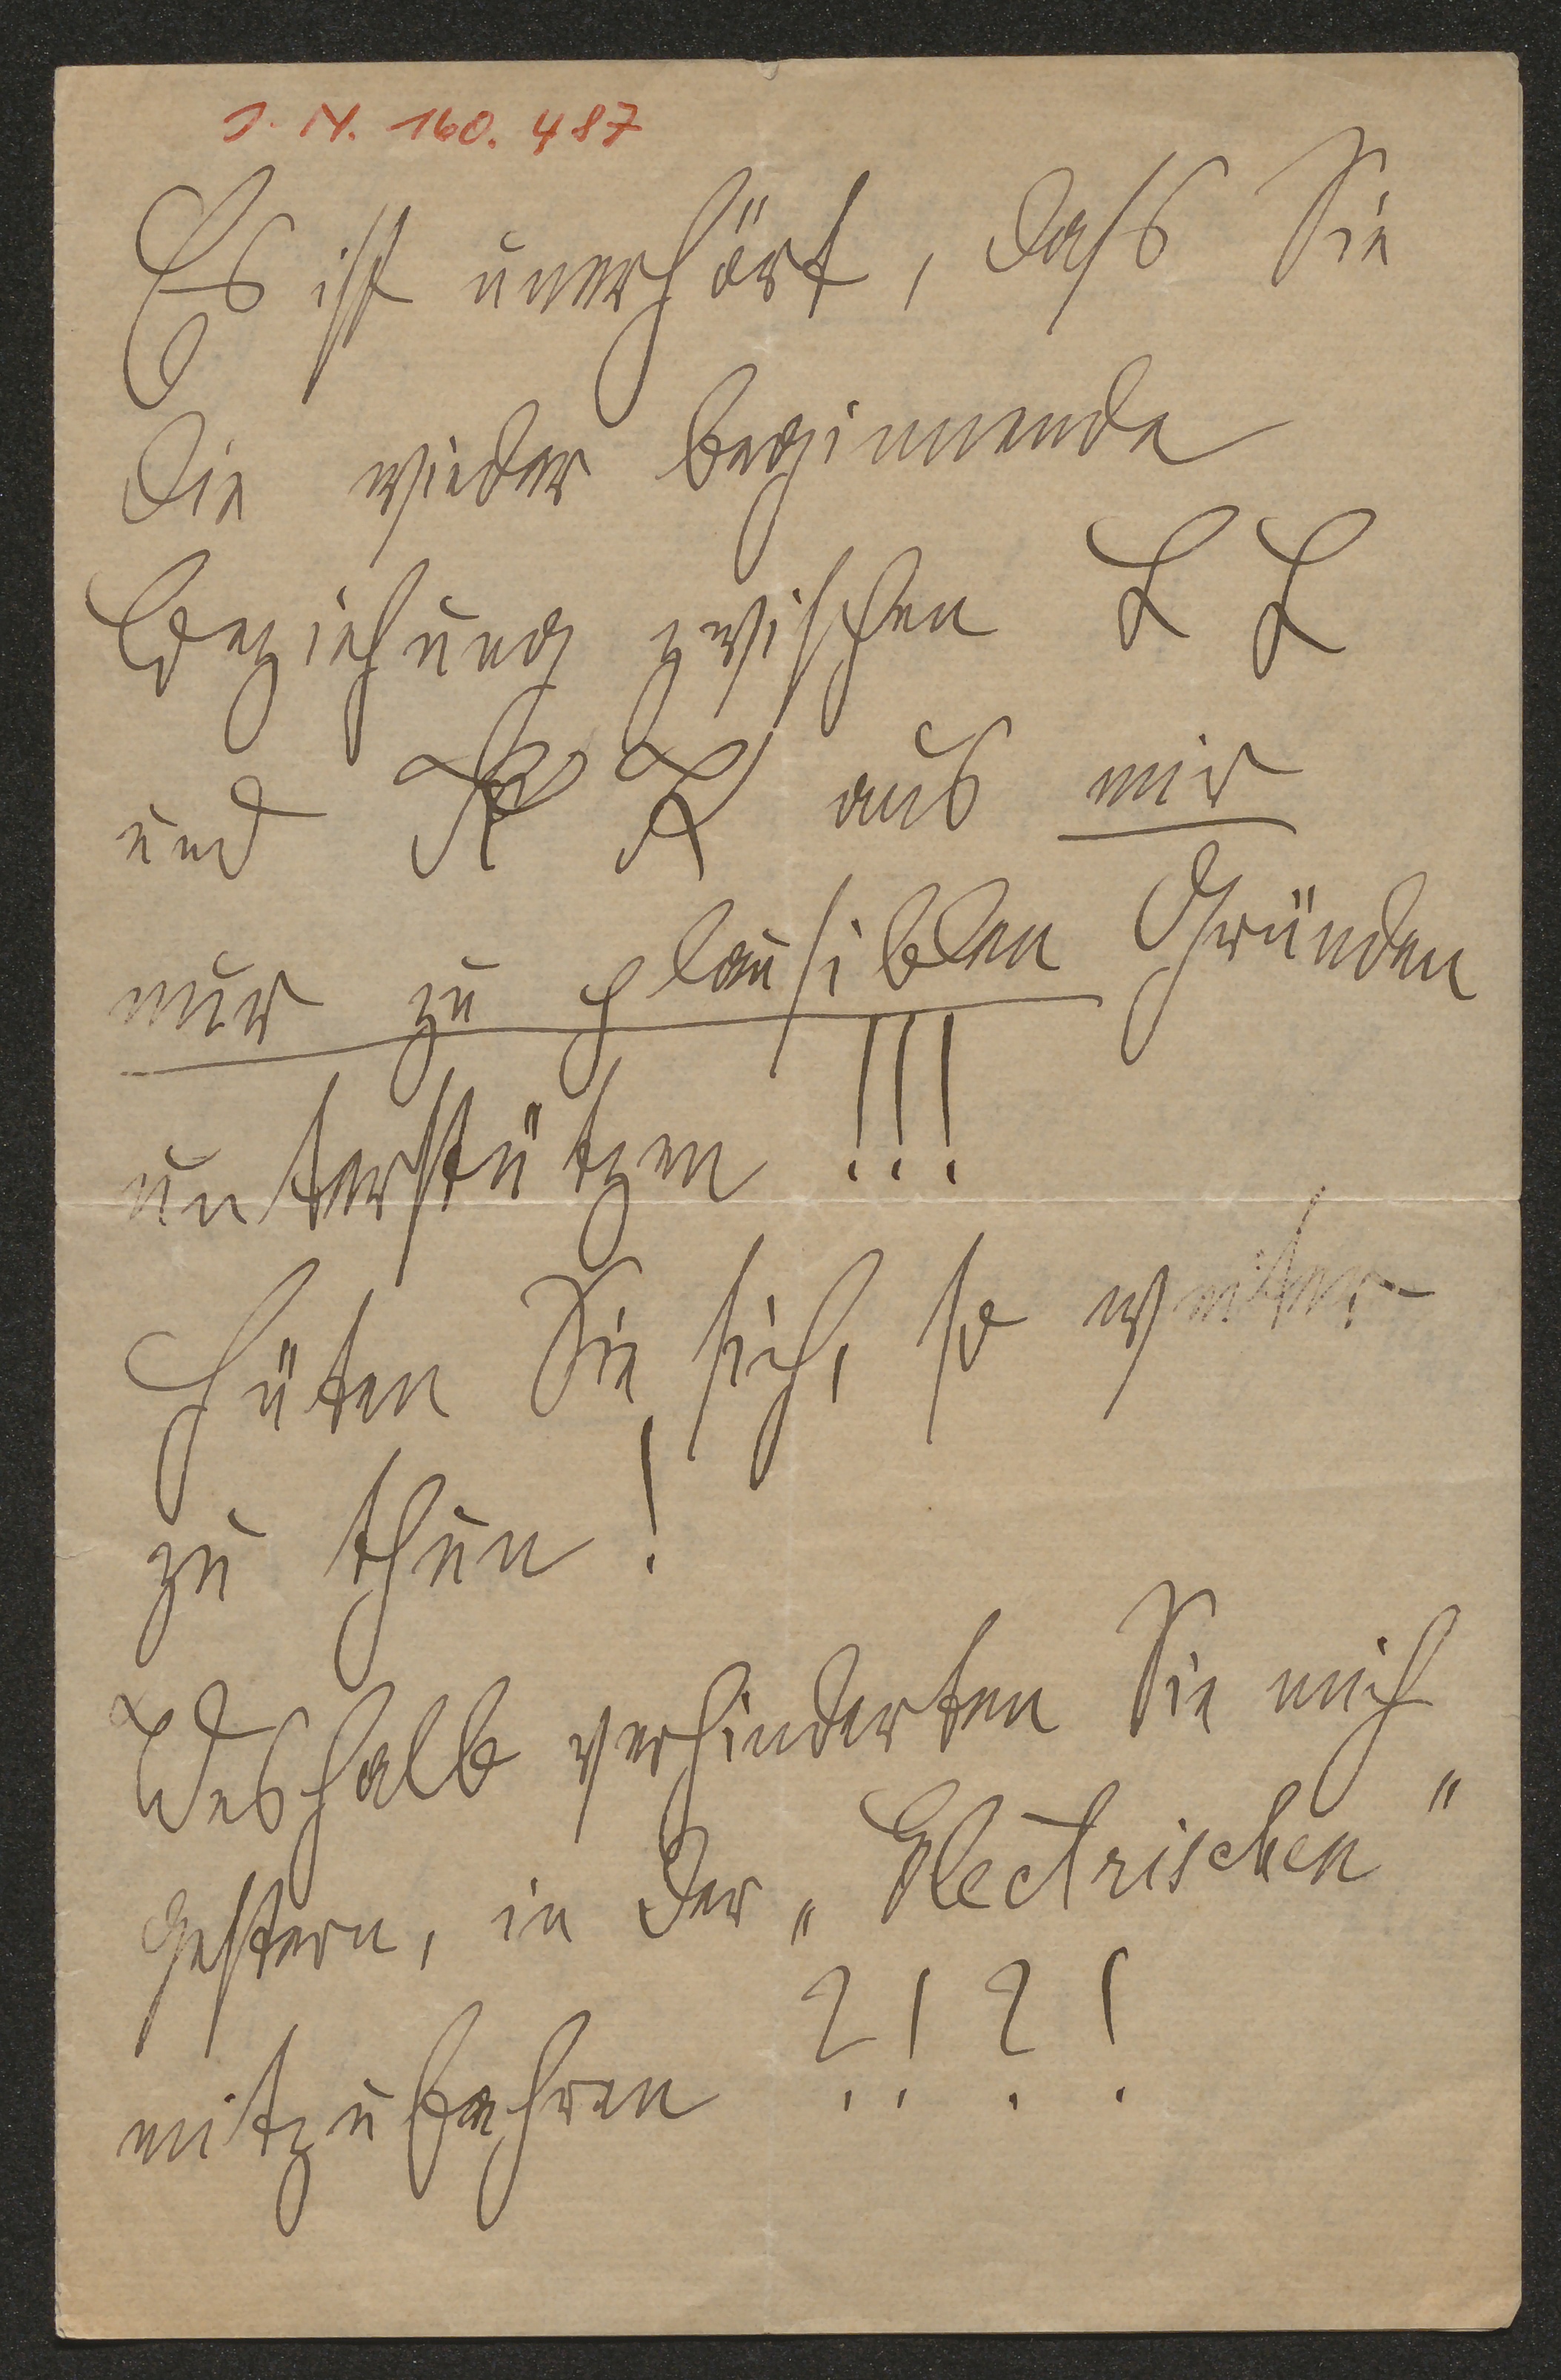 J. N. 160.487
Es ist unerhört, dass Sie
die wieder beginnende
Beziehung zwischen L L
und K K aus mir
nur zu plausiblen Gründen
unterstützen !!!
Hüten Sie sich, so weiter
zu thun!
Weshalb verhinderten Sie mich
gestern, in der „Electrischen"
mitzufahren ?!?!